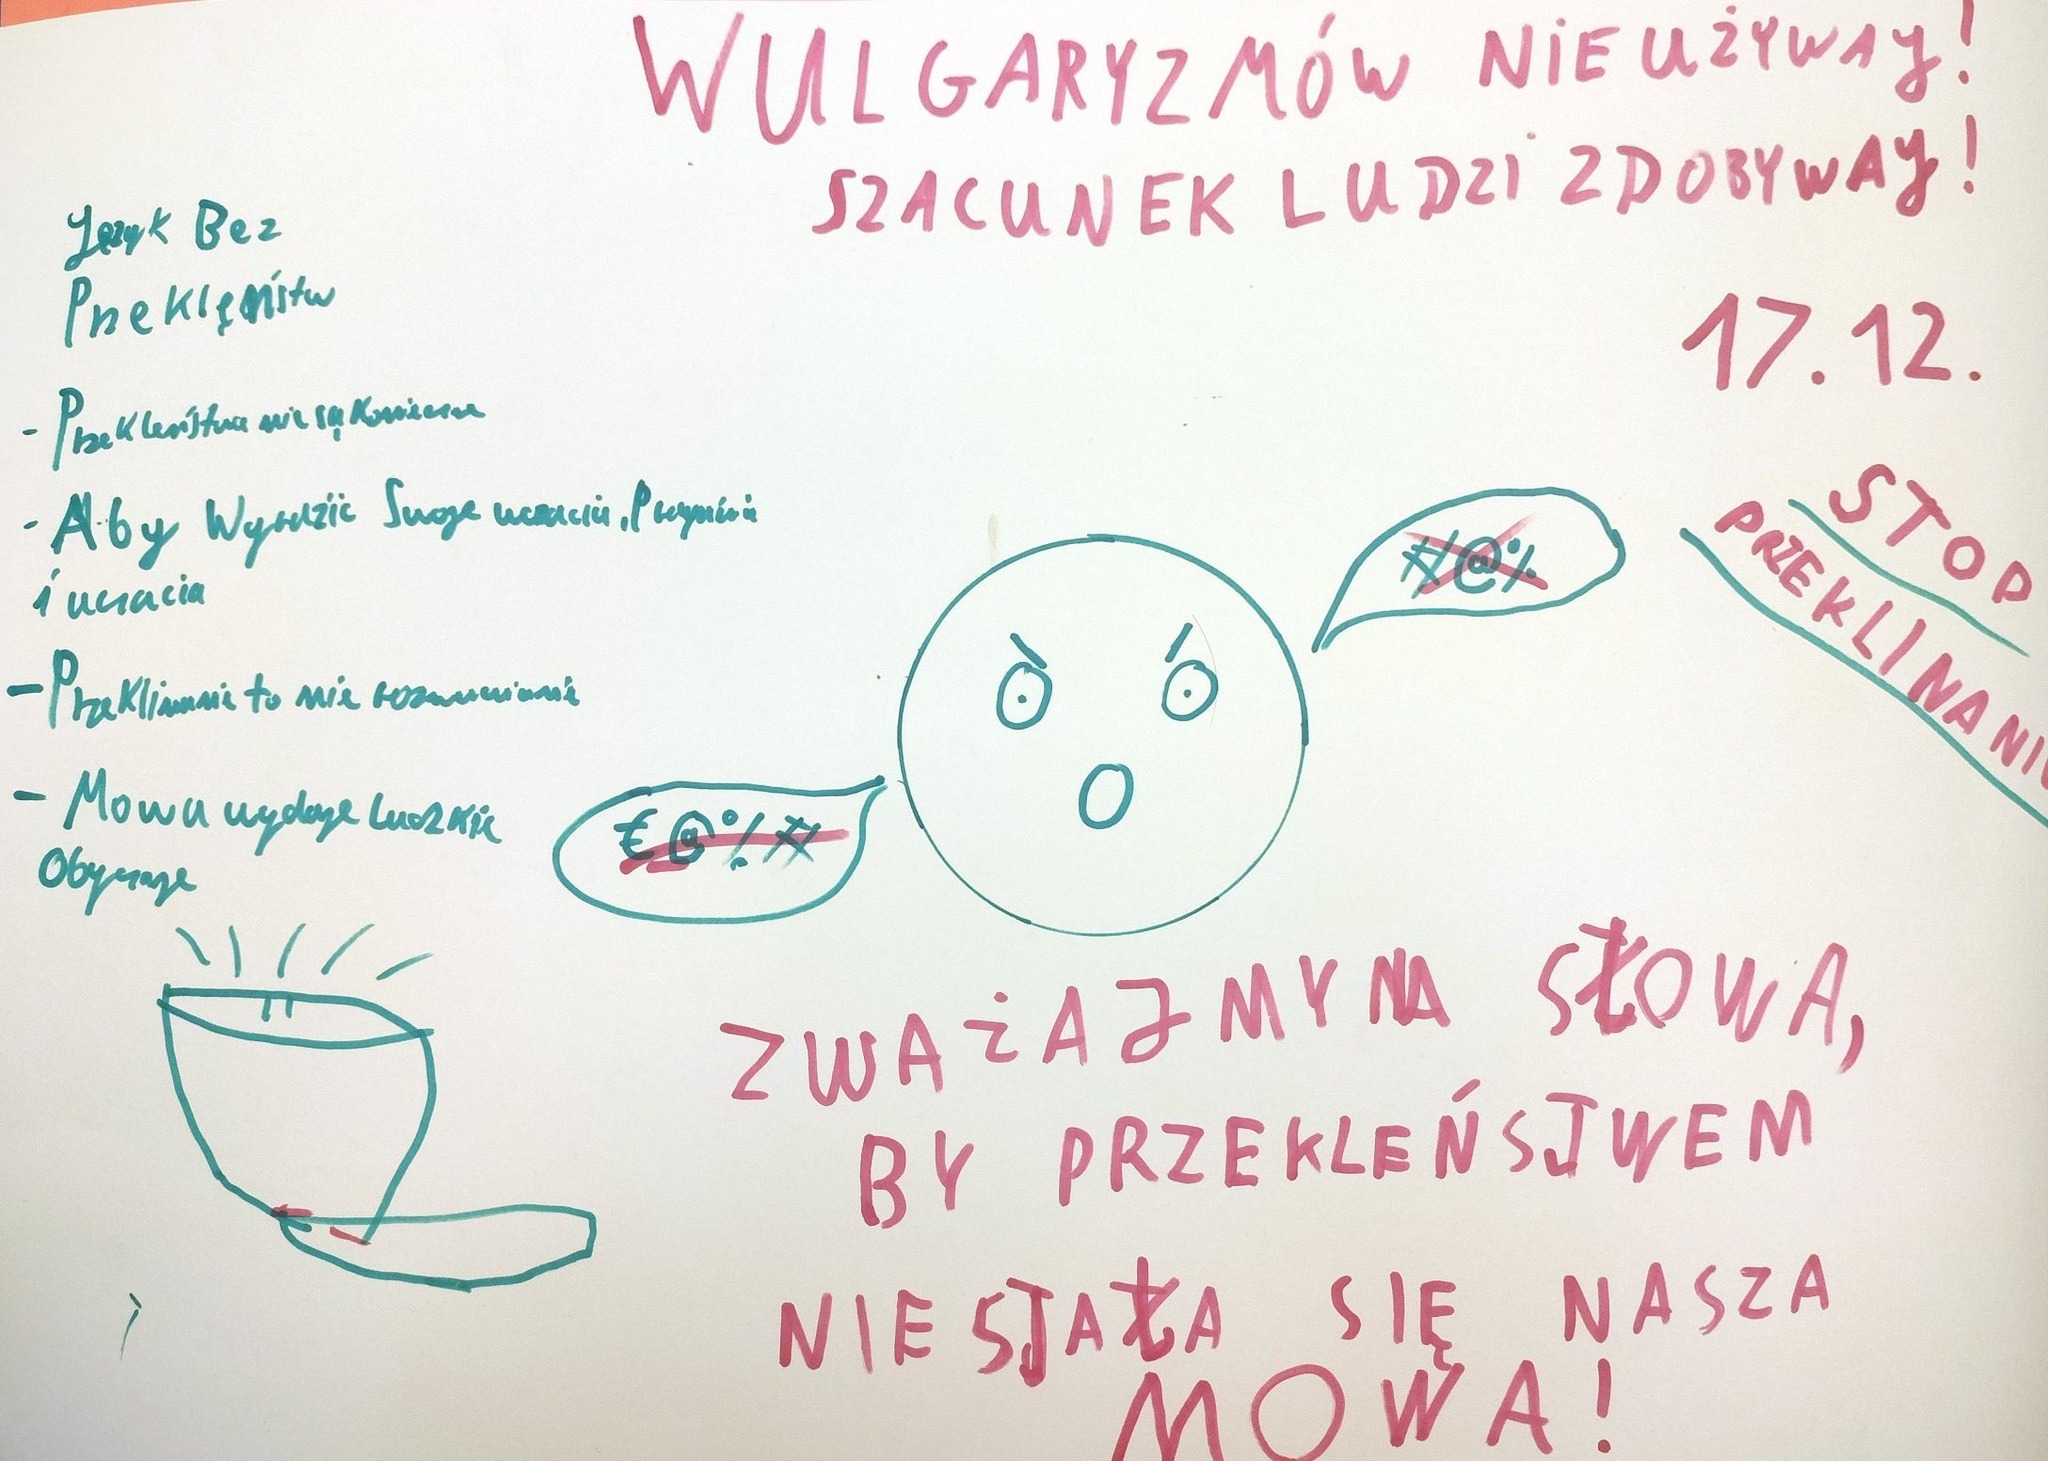 WULGARYZMÓW NIE UŻYWAJ!
SZACUNEK LUDZI ZDOBYWAJ!
17.12.
Język Bez
Przeklęństw
- Przekleństwa nie są konieczne
- Aby Wyrazić Swoje uczucia,
i uczucia
- Przeklinanie to nie rozmawianie
- Mowa wydaje Ludzkie
Obyczaje
STOP
PRZEKLINANIU
#@%
€@%#
ZWAŻAJMY NA SŁOWA,
BY PRZEKLEŃSTWEM
NIE STAŁA SIĘ NASZA
MOWA!